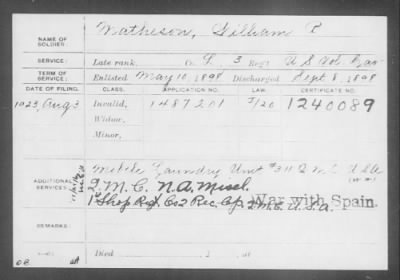 NAME OF SOLDIER: Matheson, William P.
SERVICE: Late rank, Co. L, 3 Reg't U S Vol.
TERM OF SERVICE: Enlisted May 10, 1898 Discharged Sept 8, 1898
DATE OF FILING. CLASS. APPLICATION NO. LAW. CERTIFICATE NO.
1923, Aug 3 Invalid, 1487201 1240089
Widow,
Minor,
ADDITIONAL SERVICES: Mobile Laundry Unit #311 Q M C U S A
Q. M. C. N.A. Miscl.
1st Shop Co 2 Rec. Cp. U.S.A.
War with Spain.
REMARKS:
Died , 1